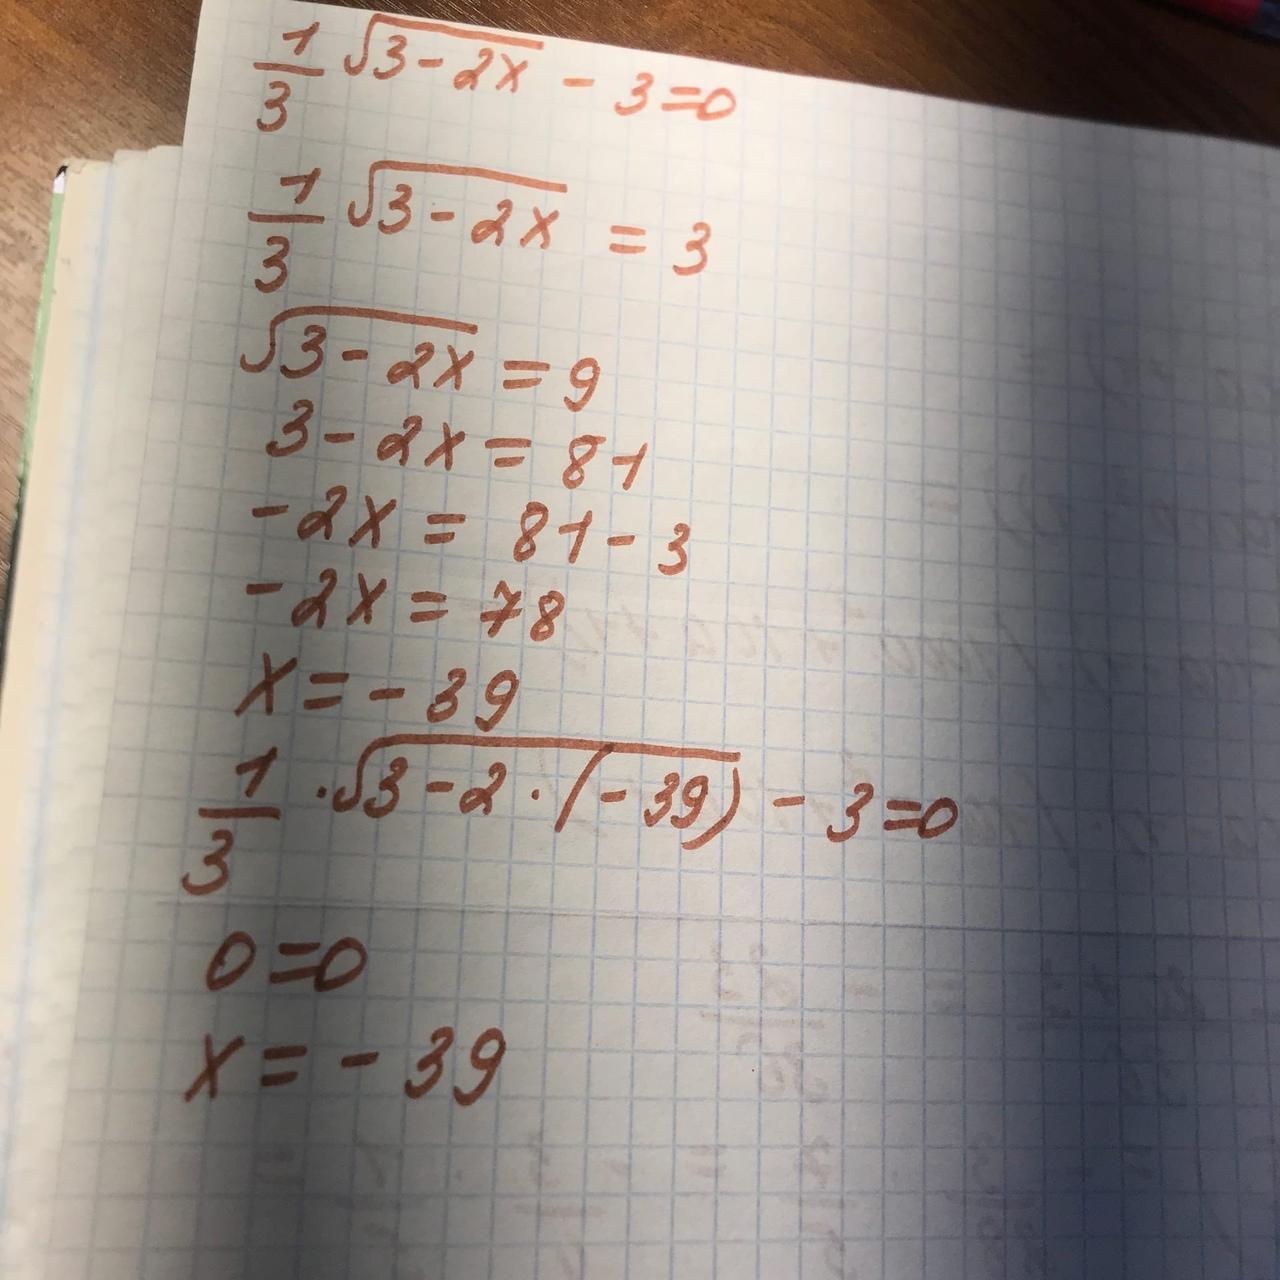 1/3 √(3-2x) - 3=0
1/3 √(3-2x) = 3
√(3-2x) = 9
3-2x = 81
-2x = 81-3
-2x = 78
x = -39
1/3 · √(3-2·(-39)) - 3=0
0=0
x = -39